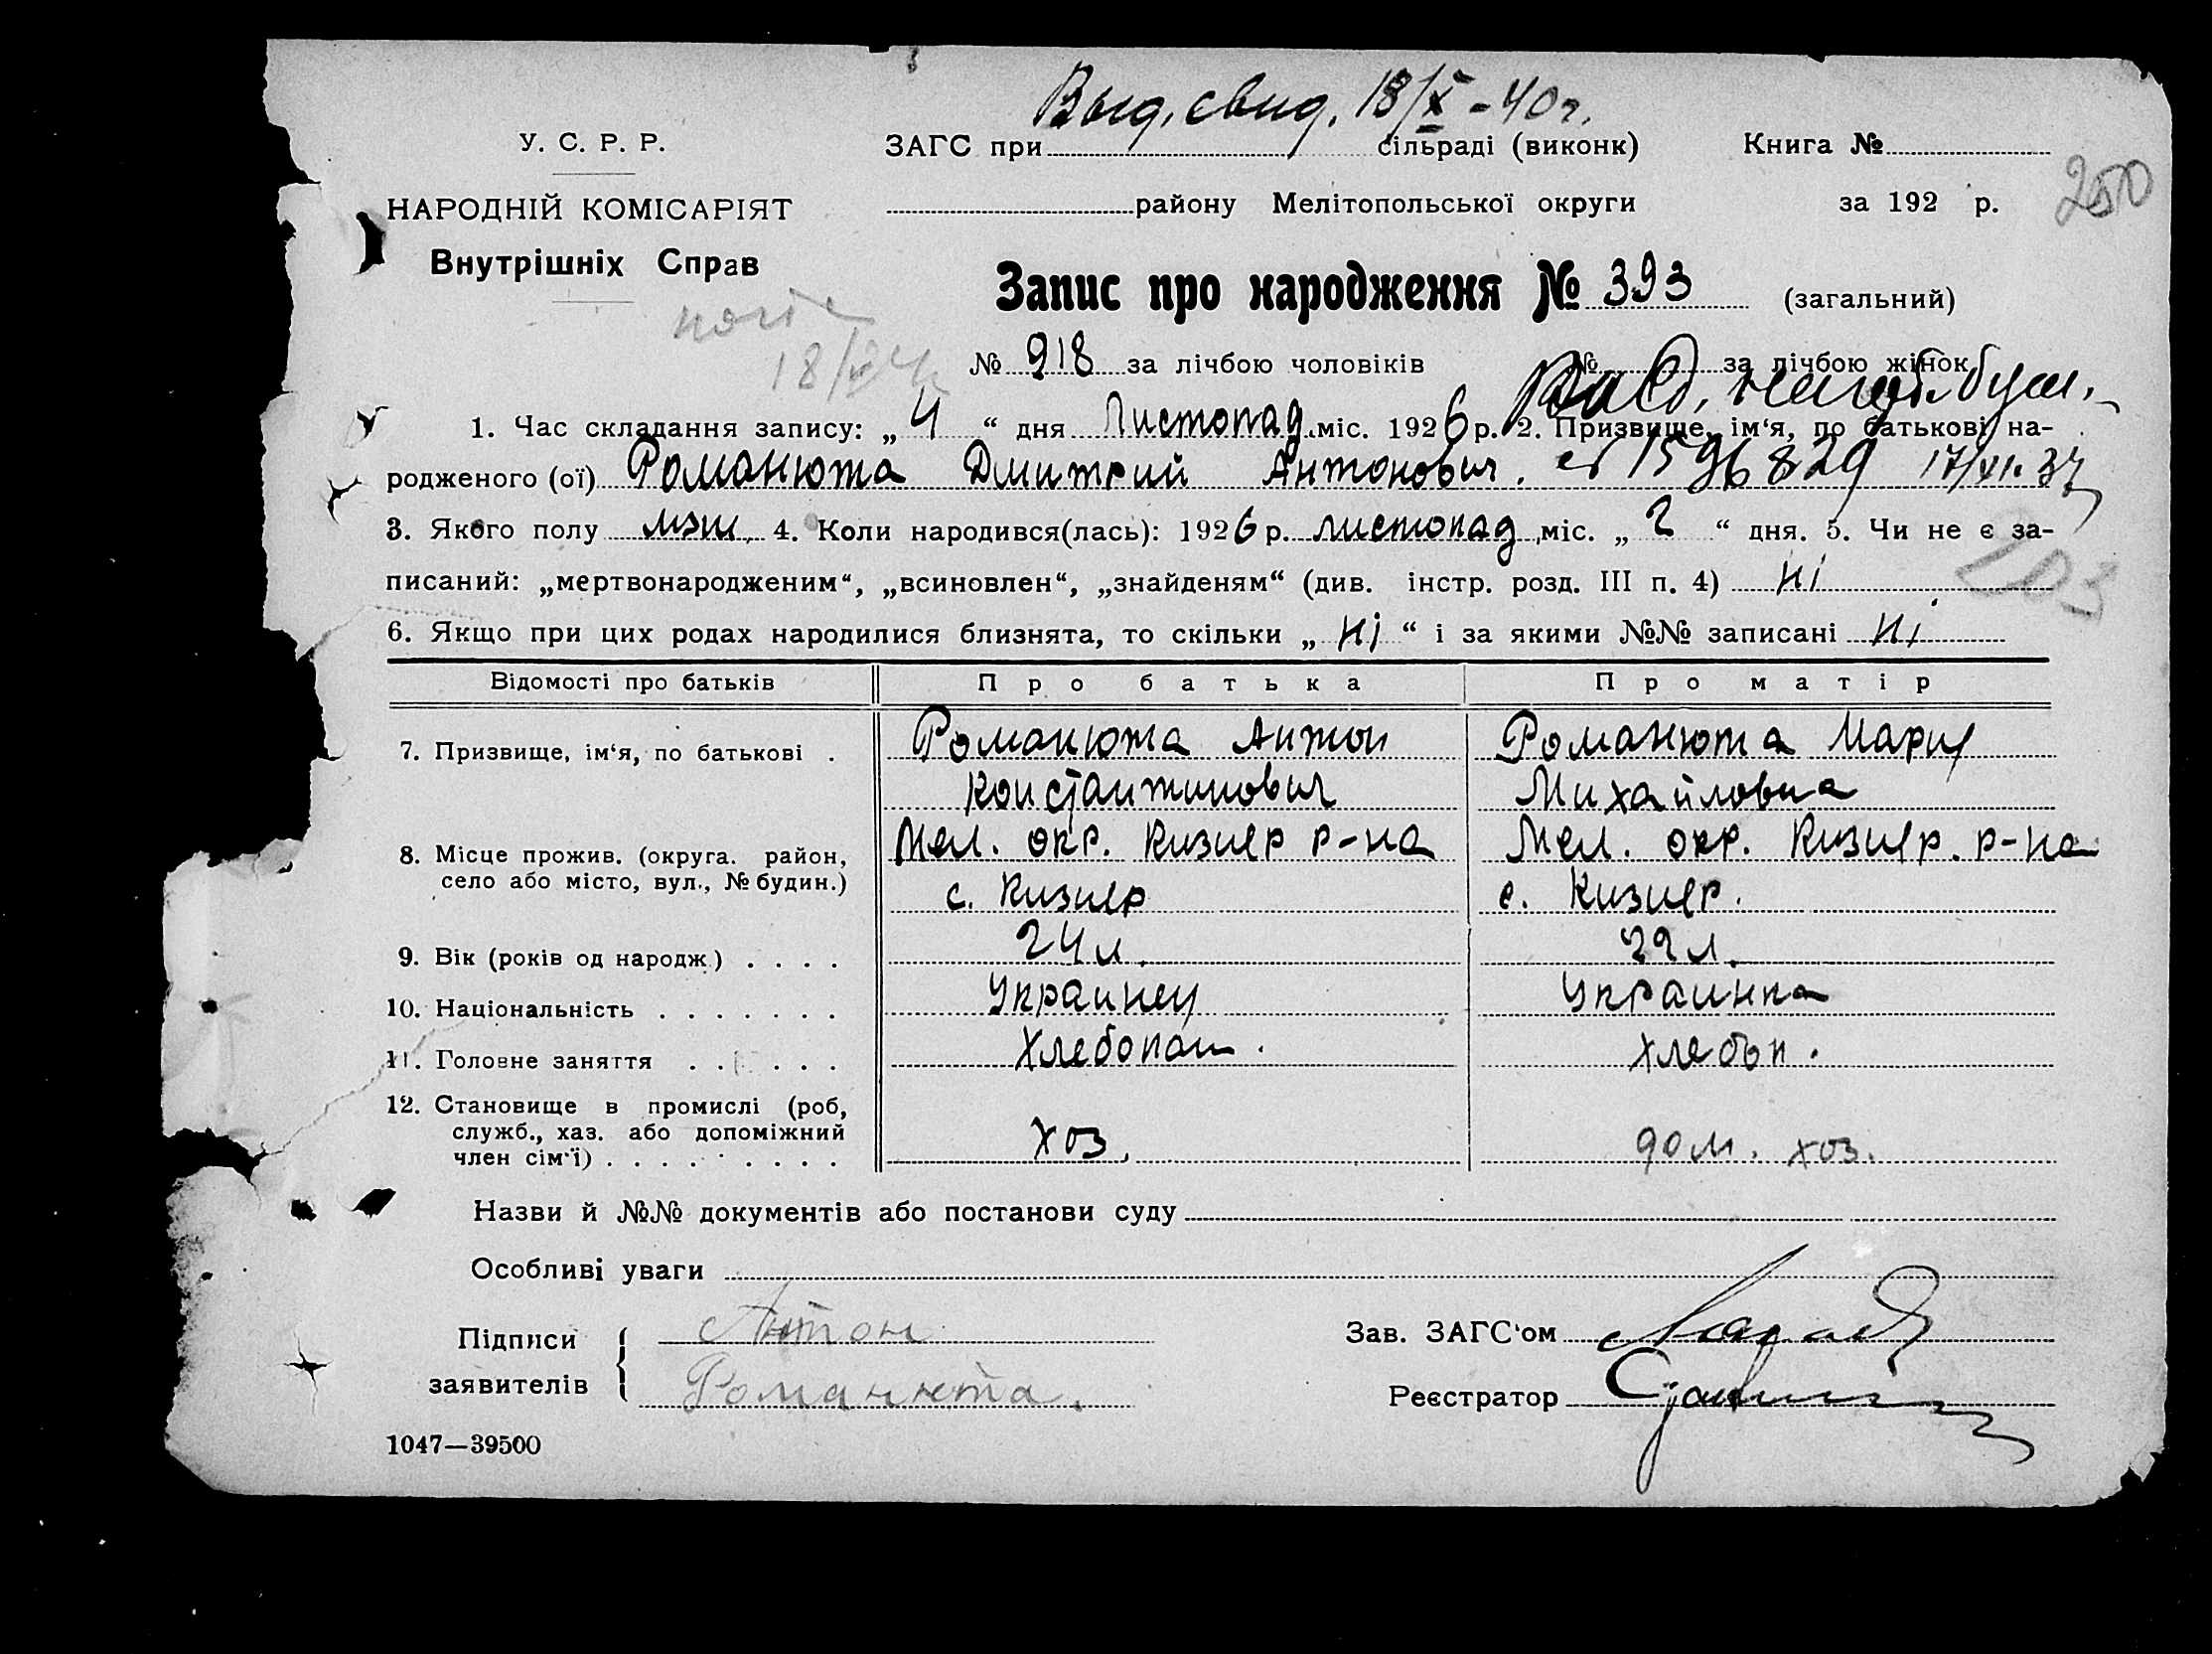 Выд. свид. 18/X-40г.
У. С. Р. Р.
ЗАГС при сільраді (виконк)
Книга №
250
НАРОДНІЙ КОМІСАРІЯТ
району Мелітопольської округи
за 192 р.
Внутрішніх Справ
Запис про народження № 393 (загальний)
№ 918 за лічбою чоловіків № за лічбою жінок
1. Час складання запису: „ 4 “ дня Листопад міс. 1926 р. 2. Призвище, ім‘я, по батькові на-
родженого (ої) Романюта Дмитрий Антонович. 1596829 17/XI. 37
3. Якого полу муш. 4. Коли народився(лась): 1926 р. листопад міс. „ 2 “ дня. 5. Чи не є за-
203
писаний: „мертвонародженим“, „всиновлен“, „знайденям“ (див. інстр. розд. III п. 4) ні
6. Якщо при цих родах народилися близнята, то скільки „ ні “ і за якими №№ записані ні
Відомості про батьків Про батька Про матір
7. Призвище, ім‘я, по батькові . Романюта Антон Романюта Мария
Константинович Михайловна
8. Місце прожив. (округа. район, Мел. окр. Кизиер р-на Мел. окр. Кизиер. р-на
село або місто, вул., № будин.) с. Кизиер с. Кизиер.
9. Вік (років од народж.) . . . . 24 л. 22 л.
10. Національність . . . . . . . Украинец Украинка
11. Головне заняття . . . . . . Хлебопаш. хлебоп.
12. Становище в промислі (роб,
служб., хаз. або допоміжний хоз. дом. хоз.
член сім‘ї) . . . . . . . . .
Назви й №№ документів або постанови суду
Особливі уваги
Підписи Антон
Зав. ЗАГС‘ом
заявителів Романюта.
Реєстратор
1047—39500